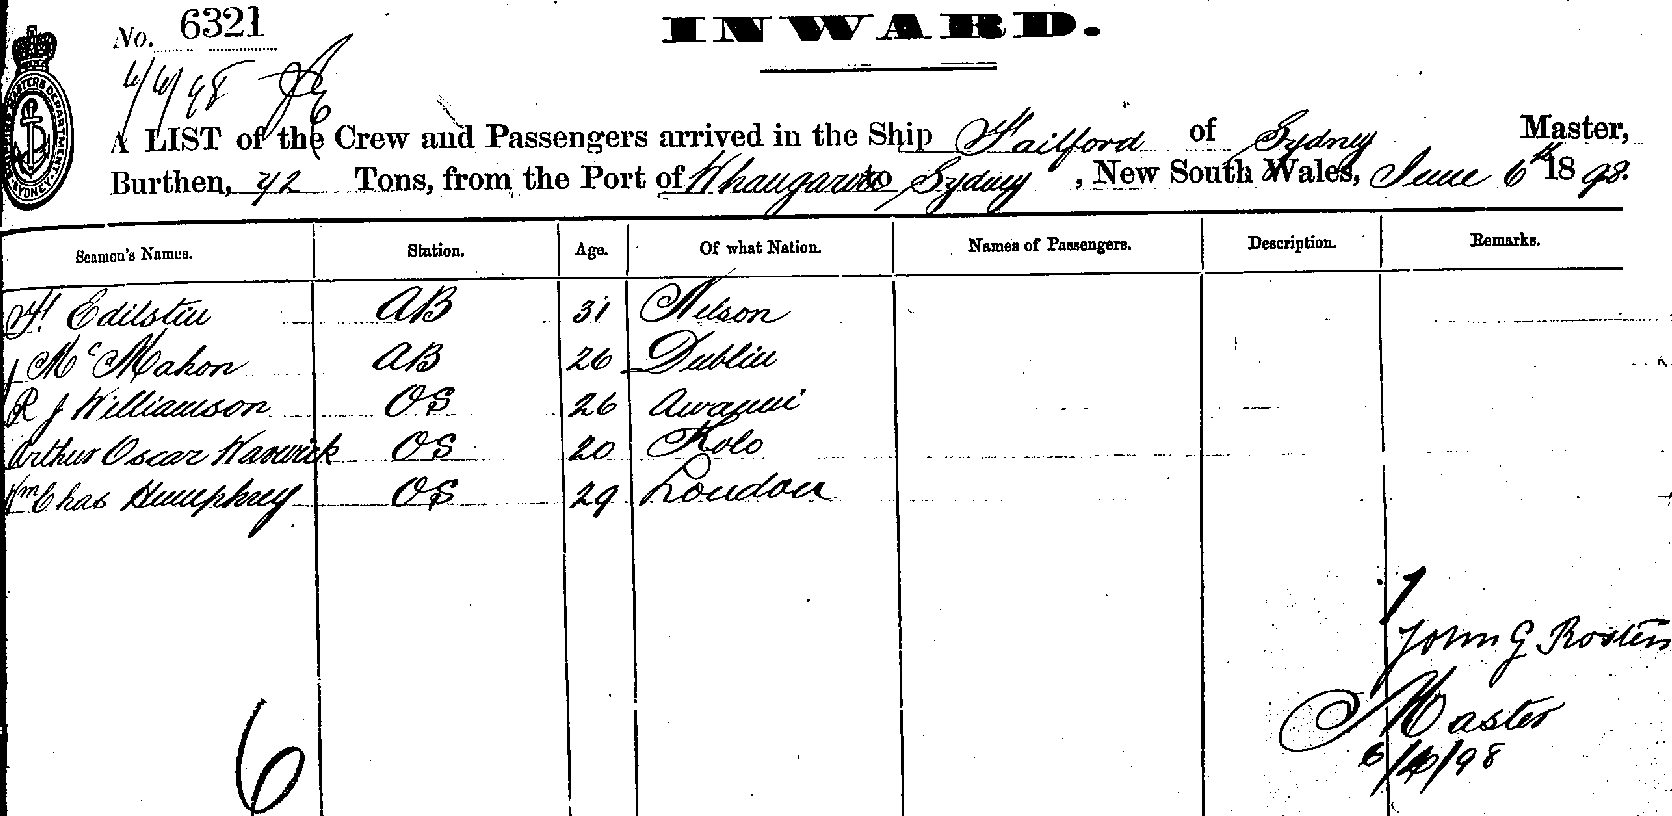 No. 6321
INWARD.
6/6/98
A LIST of the Crew and Passengers arrived in the Ship Failford of Sydney Master,
Burthen, 42 Tons, from the Port of Whangaroa to Sydney, New South Wales, June 6th 1898.
Seamen's Names. Station. Age. Of what Nation. Names of Passengers. Description. Remarks.
H. Edilstin AB 31 Nelson
J McMahon AB 26 Dublin
R J Williamson OS 26 Awanui
Arthur Oscar Warwick OS 20 Kolo
Wm Chas Humphrey OS 29 London
John G
Master
6/6/98
6